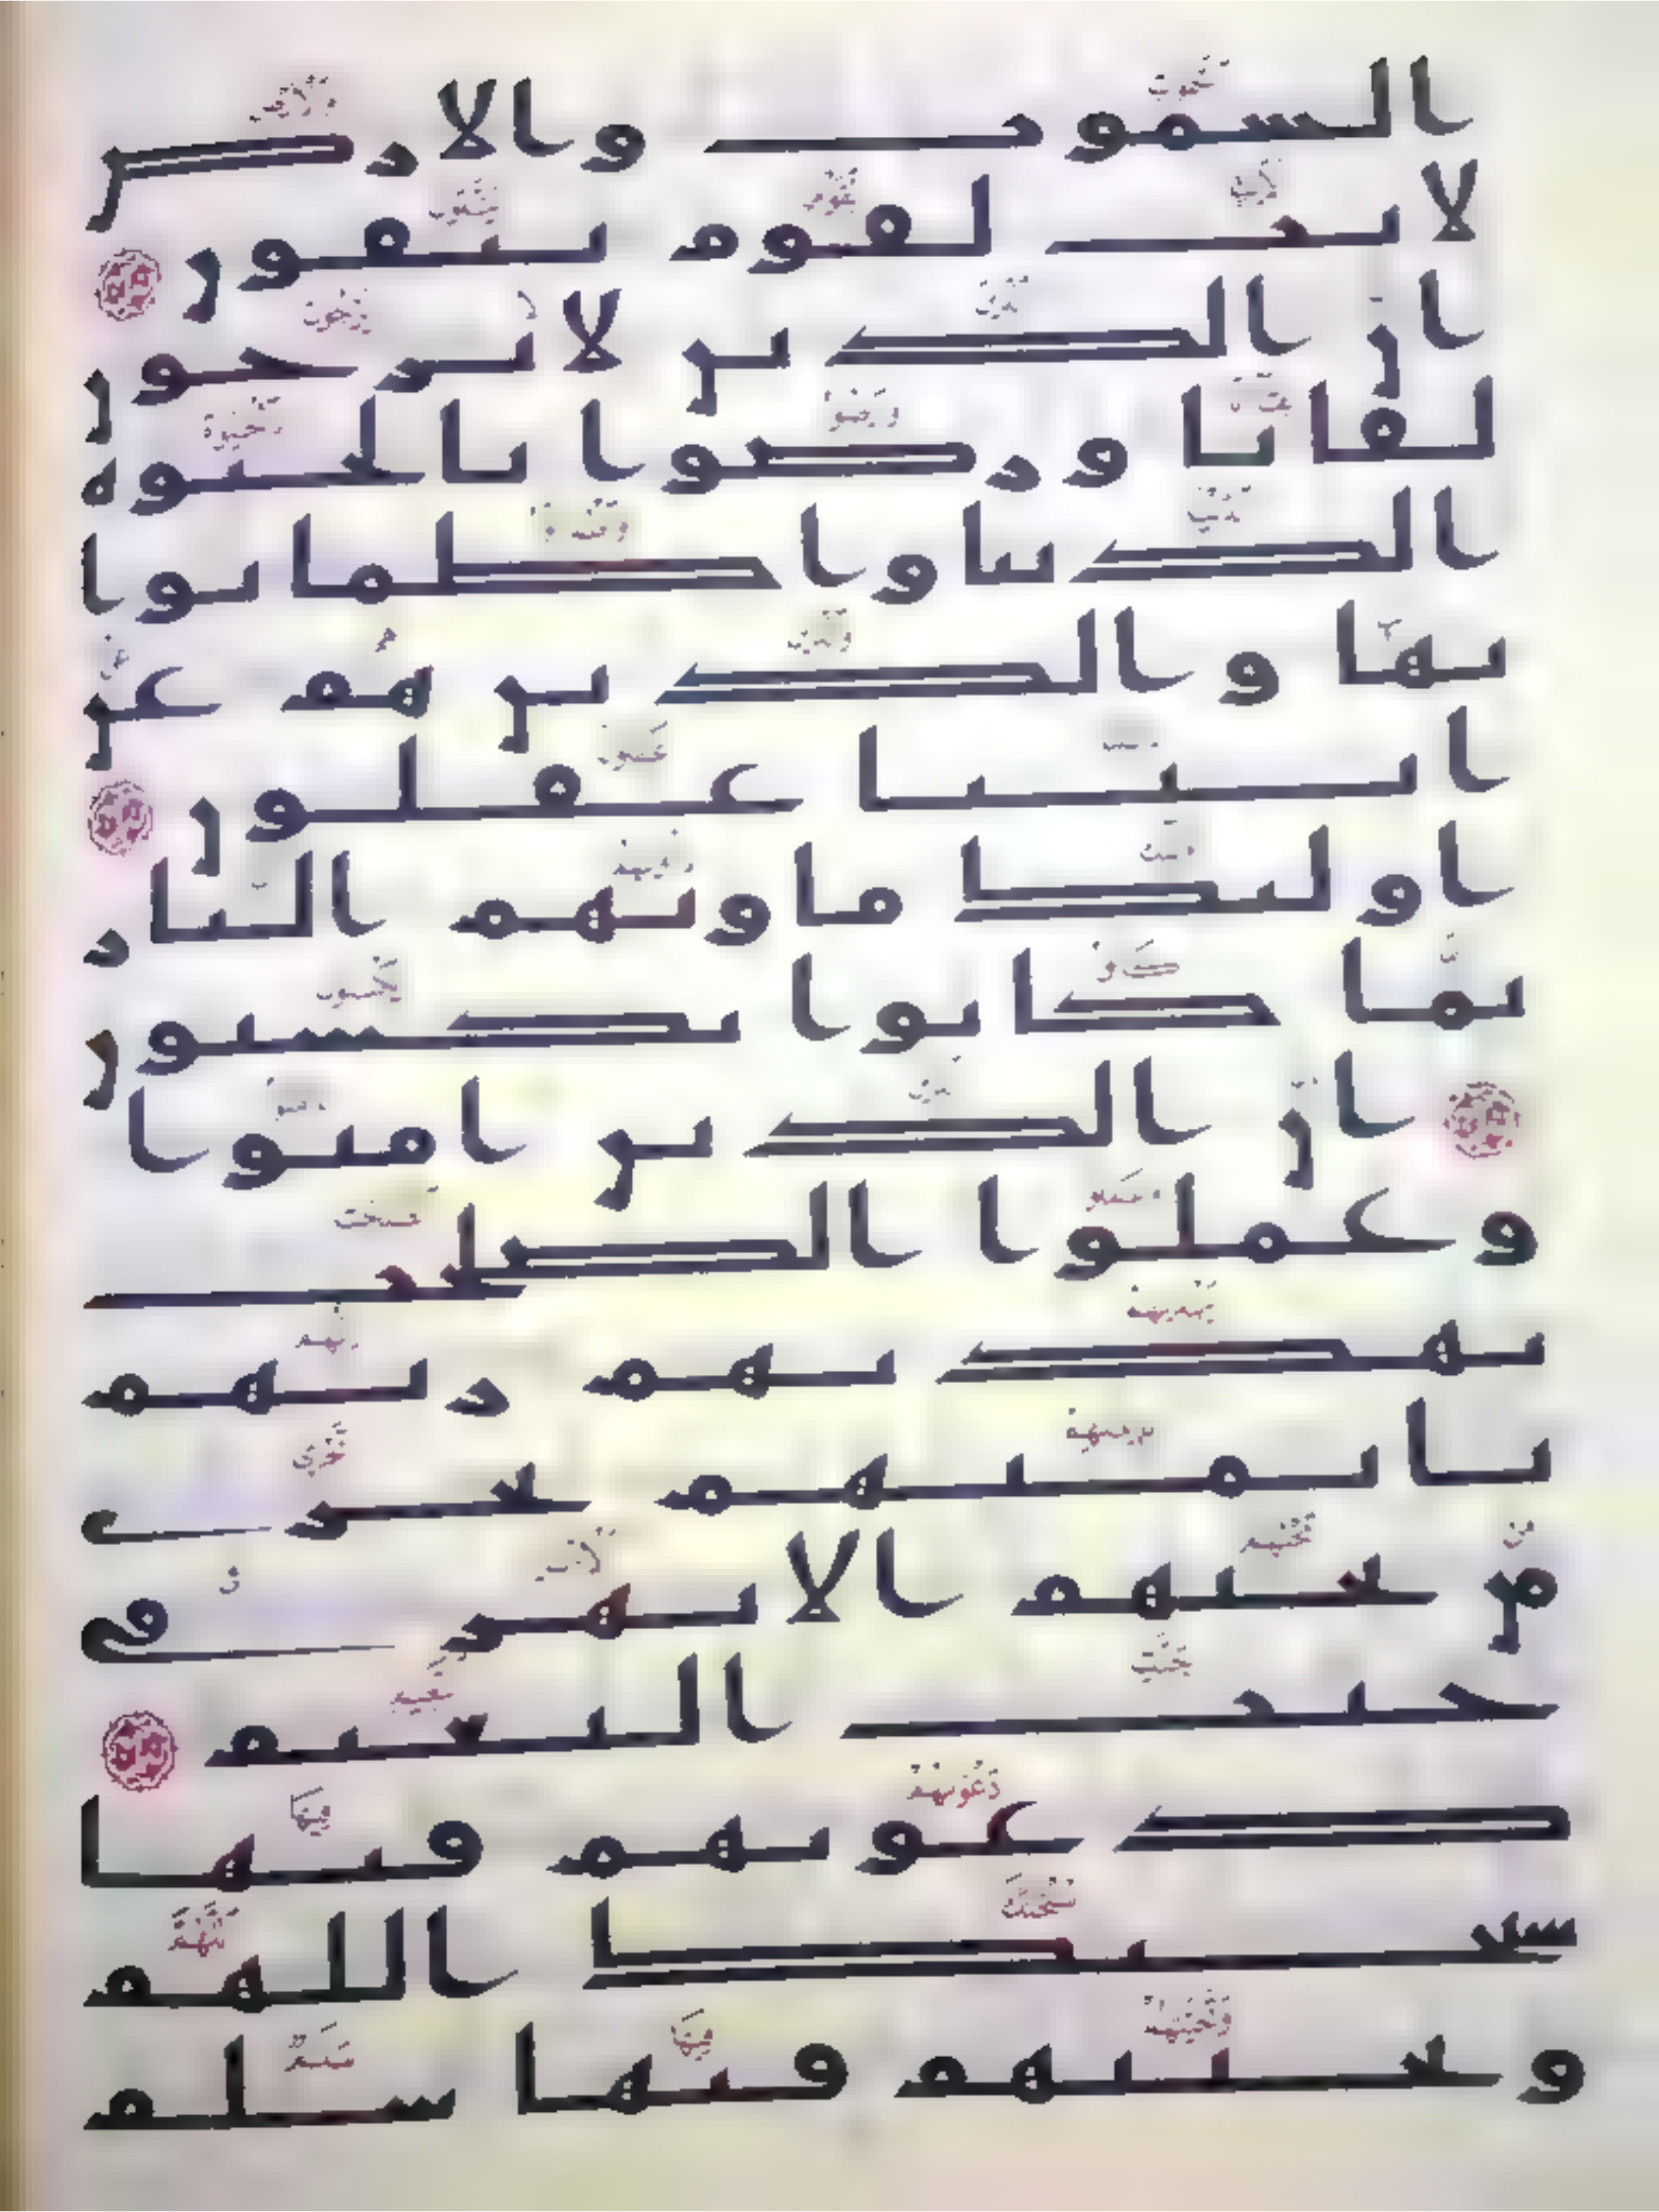 السموت والارض
لايت لقوم يتقون
ان الذين لا يرجون
لقانا ورضوا بالحيوة
الدنيا واطمانوا
بها والذين هم عن
ايتنا غفلون
اوليك ماويهم النار
بما كانوا يكسبون
ان الذين امنوا
وعملوا الصلحت
يهديهم ربهم
بايمنهم تجرى
من تحتهم الانهر فى
جنت النعيم
دعويهم فيها
سبحنك اللهم
وتحيتهم فيها سلم